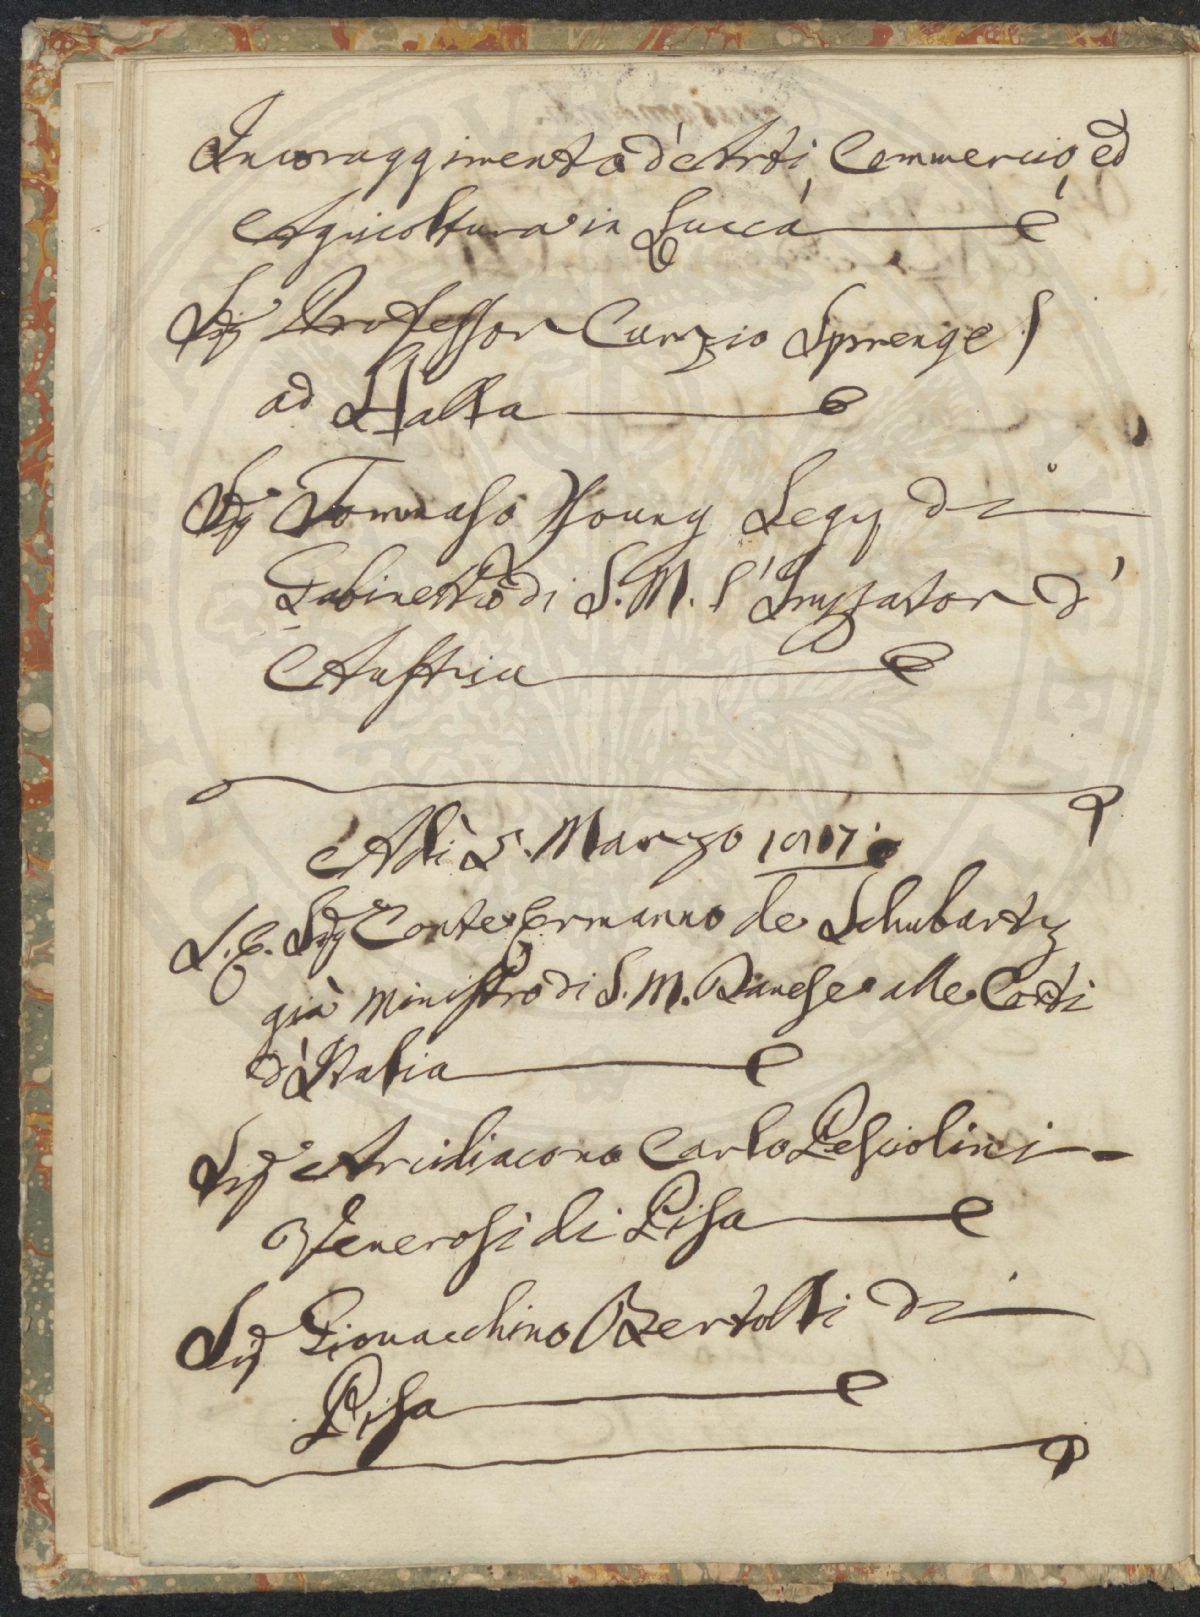 Incoraggimento d'Arti, Commercio, ed
Agricoltura in Lucca
Sig.e Professor Curzio Sprengel
ad Halla
Sig.e Tommaso Young Seg.o di
Gabinetto di S. M. l'Imperator d'
Austria
Adì 5. Marzo 1817
S. E. Sig.e Conte Ermanno de Schubartz
già Ministro di S. M. Danese alle Corti
d'Italia
Sig.e Arcidiacono Carlo Pesciolini
Venerosi di Pisa
Sig.e Giovacchino Bertolli di
Pisa